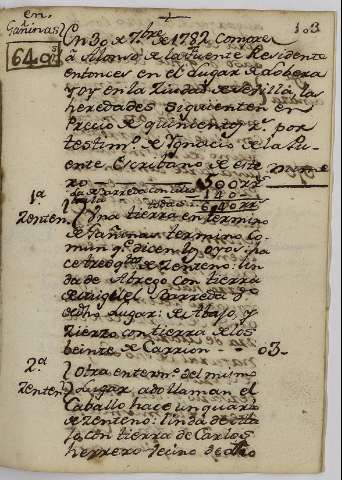 en
Gañinas
103
640
En 30 de 7bre de 1782 compre
â Alonso de la fuente Residente
entonces en el Lugar de Lobera
y oy en la Ciudad de Sevilla las
heredades siguientes en
Precio de quinientos rs por
testimo de Ignacio de la Pu-
ente Escribano de este
500 rs
La de Barreda con ella 140
todas 640 rs
1a
Zenten
Una tierra en termino
de Gañinas termino Co-
mun qe dicen los oyos: ha
ce tres qtos de Zenteno: lin
da de Abrego con tierra
de Miguel Barreda vo
de dho Lugar: de Abajo, y
Zierzo con tierra de los
beinte de Carrion - 03-
2a
Zenteno
Otra en termo del mismo
Lugar, ado llaman el
Caballo hace un quarto
de Zenteno: linda de
con tierra de Carlos
herrero vecino de dho